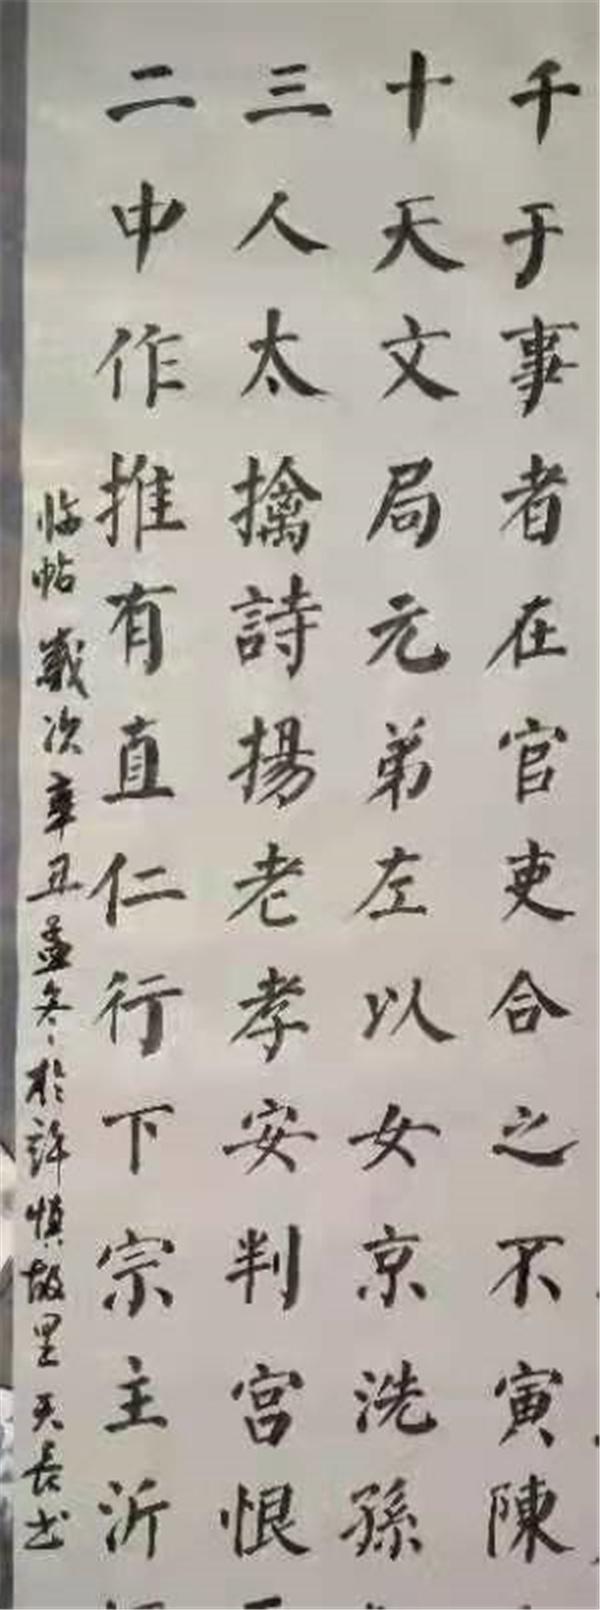 千于事者在官吏合之不寅陳
十天文局元弟左以女京洗孫
三人太擒詩揚老孝安判宫恨
二中作推有直仁行下宗主沂
临帖 歲次辛丑孟冬於許慎故里天長书